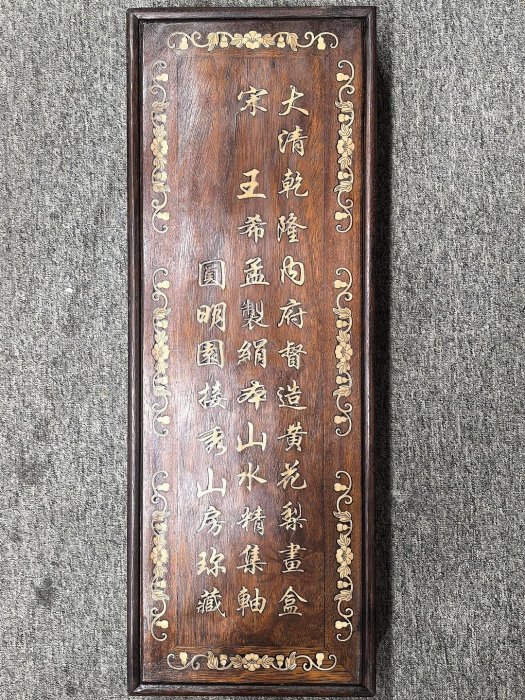 大清乾隆內府督造黄花梨畫盒
宋 王希孟製絹本山水精集軸
圓明園接秀山房珎藏